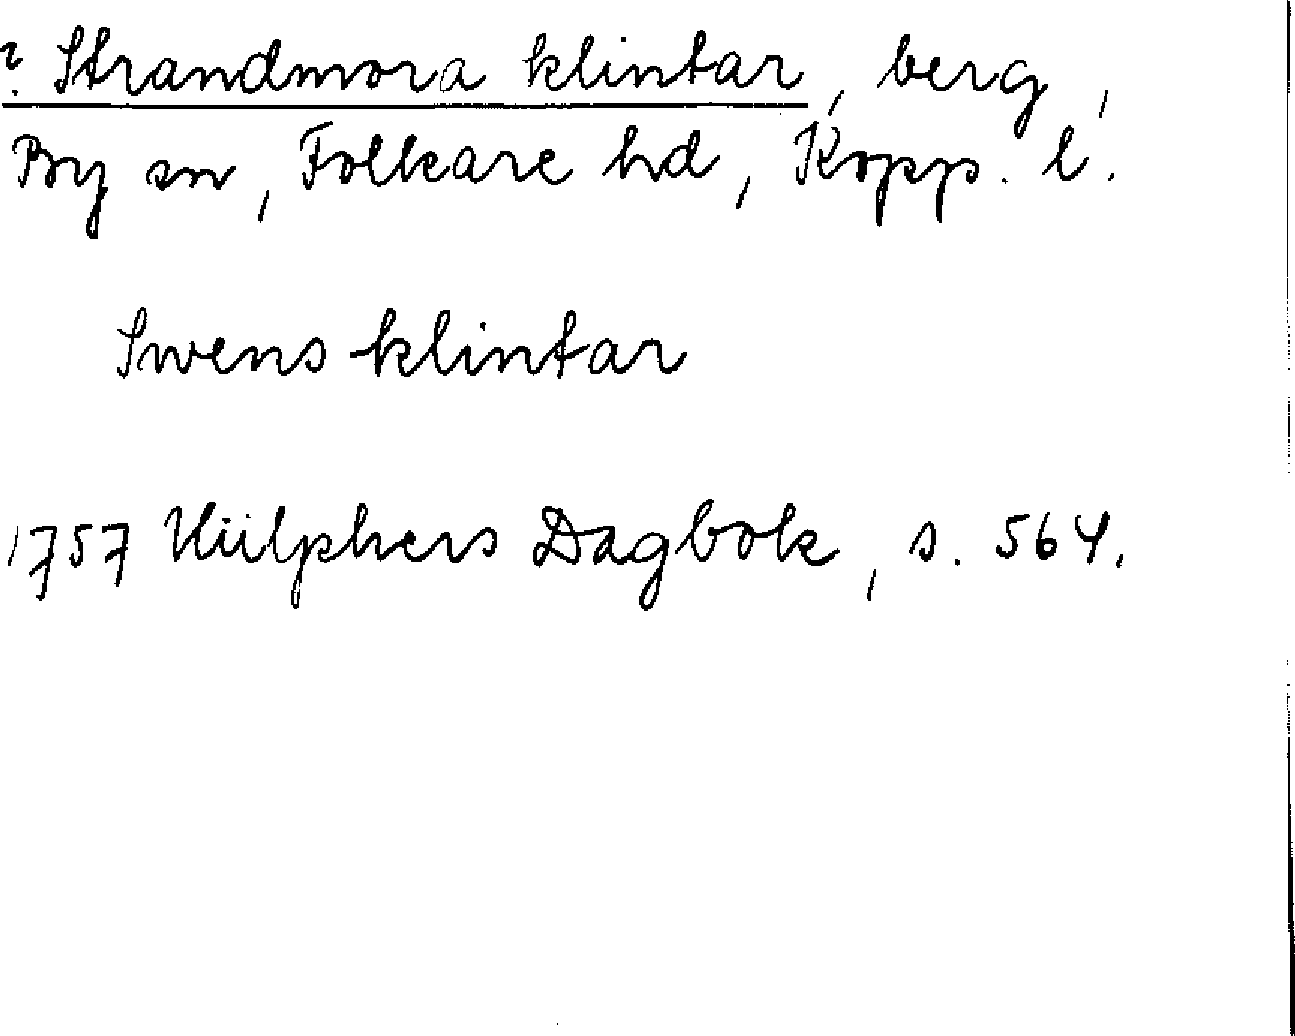 ? Strandmora klintar, berg,
By sn, Folkare hd, Kopp. l.
Swens klintar
1757 Hülphers Dagbok, s. 564.